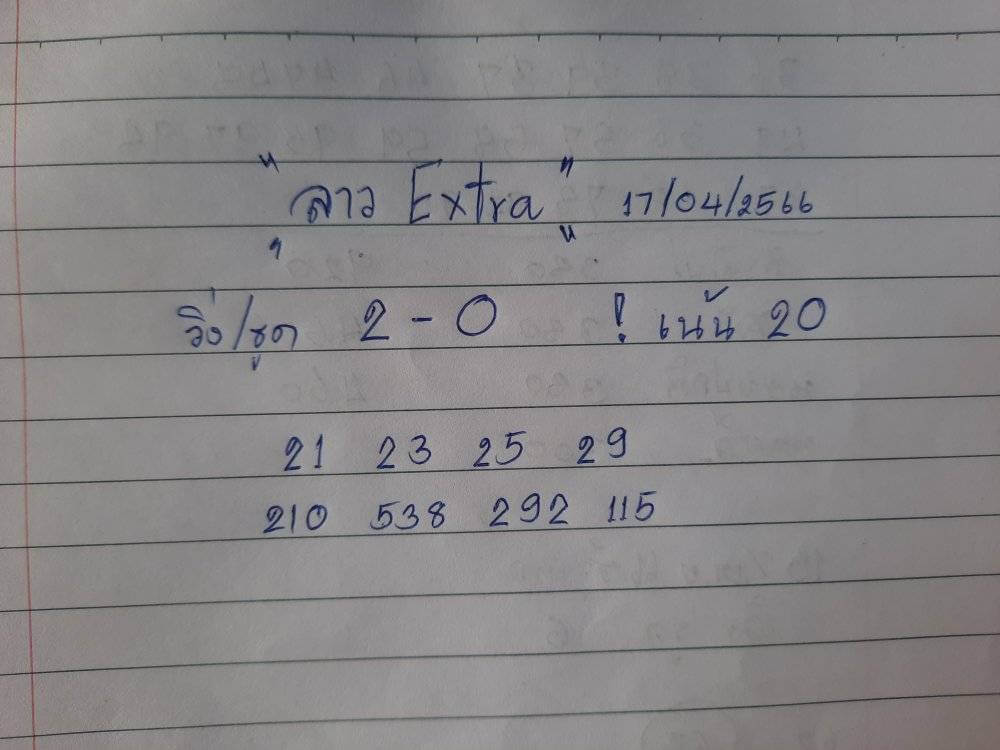 "ลาว Extra" 17/04/2566
วิ่ง/รูด 2 - 0 ! เน้น 20
21 23 25 29
210 538 292 115